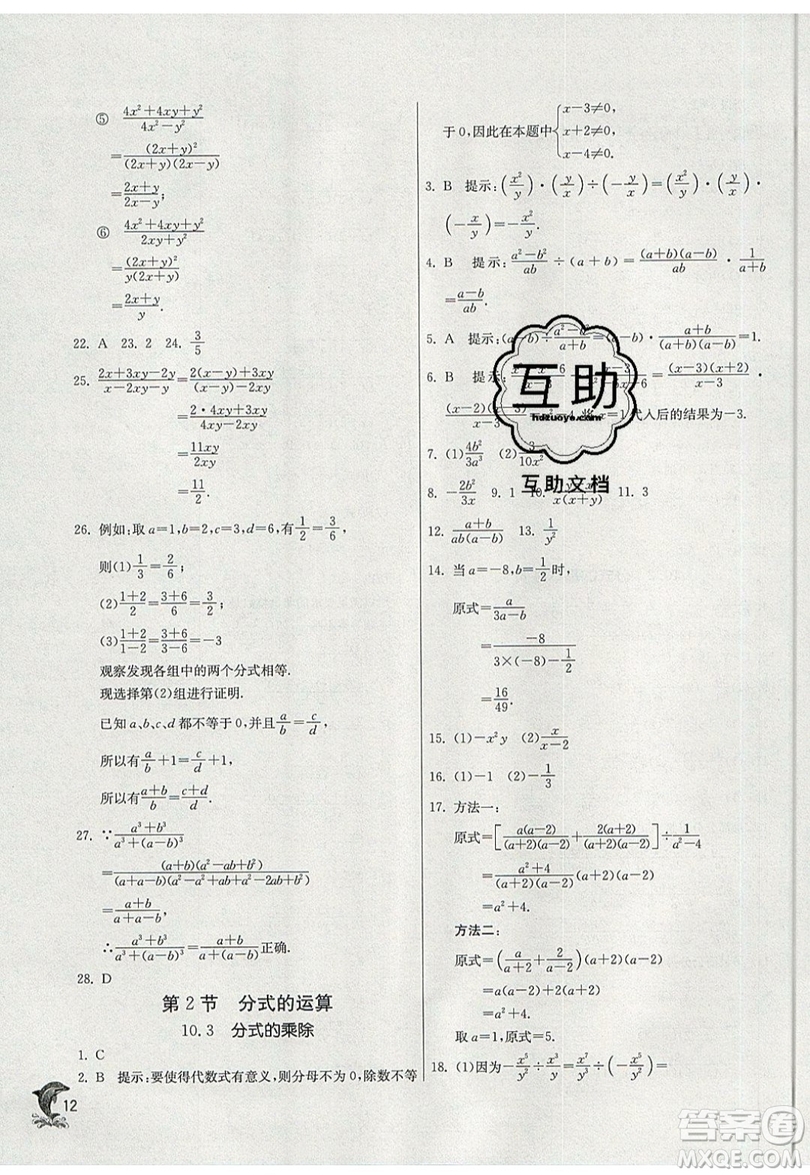 ⑤ (4x²+4xy+y²)/(4x²−y²)
=(2x+y)²/((2x+y)(2x−y))
=(2x+y)/(2x−y);
⑥ (4x²+4xy+y²)/(2xy+y²)
=(2x+y)²/(y(2x+y))
=(2x+y)/y.
22. A 23. 2 24. 3/5
25. (2x+3xy−2y)/(x−2xy−y)=(2(x−y)+3xy)/((x−y)−2xy)
=(2·4xy+3xy)/(4xy−2xy)
=11xy/2xy
=11/2.
26. 例如:取a=1,b=2,c=3,d=6,有1/2=3/6,
则(1)1/3=2/6;
(2)(1+2)/2=(3+6)/6;
(3)(1+2)/(1−2)=(3+6)/(3−6)=−3
观察发现各组中的两个分式相等.
现选择第(2)组进行证明.
已知a、b、c、d都不等于0,并且a/b=c/d,
所以a/b+1=c/d+1.
所以(a+b)/b=(c+d)/d.
27. ∵(a³+b³)/(a³+(a−b)³)
=((a+b)(a²−ab+b²))/((a+a−b)(a²−a²+ab+a²−2ab+b²))
=(a+b)/(a+a−b).
∴(a³+b³)/(a³+(a−b)³)=(a+b)/(a+a−b)正确.
28. D
第2节 分式的运算
10.3 分式的乘除
1. C
2. B 提示:要使得代数式有意义,则分母不为0,除数不等
12
于0,因此在本题中{x−3≠0, x+2≠0, x−4≠0.
3. B 提示:(x²/y)·(y/x)÷(−y/x)=(x²/y)·(y/x)·
(−x/y)=−x²/y.
4. B 提示:(a²−b²)/ab÷(a+b)=((a+b)(a−b))/ab·1/(a+b)
=(a−b)/ab.
5. A 提示:(a−b)÷(a²−b²)/(a+b)=(a−b)·(a+b)/((a+b)(a−b))=1.
6. B 提示: =((x−3)(x+2))/(x−3)·
将x=1代入后的结果为−3.
7. (1)4b²/3a³ (2) /10x²
8. −2b²/3x 9. 1 10. /(x(x+y)) 11. 3
12. (a+b)/(ab(a−b)) 13. 1/y²
14. 当a=−8,b=1/2时,
原式=a/(3a−b)
=−8/(3×(−8)−1/2)
=16/49.
15. (1)−x²y (2)x/(x−2)
16. (1)−1 (2)−1/3
17. 方法一:
原式=[a(a−2)/((a+2)(a−2))+2(a+2)/((a+2)(a−2))]÷1/(a²−4)
=(a²+4)/((a+2)(a−2))(a+2)(a−2)
=a²+4.
方法二:
原式=(a/(a+2)+2/(a−2))(a+2)(a−2)
=a(a−2)+2(a+2)
=a²+4.
取a=1,原式=5.
18. (1)因为−x⁵/y²÷x³/y=x⁷/y³÷(−x⁵/y²)=
互助
hdzuoye.com
互助文档
答案圈
MXQE.COM